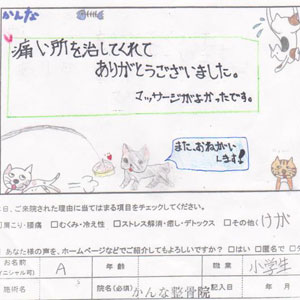 かんな
痛い所を治してくれて
ありがとうございました。
マッサージがよかったです。
また、おねがい
します!
日、ご来院された理由に当てはまる項目をチェックしてください。
□肩こり・腰痛 □むくみ・冷え性 □ストレス解消・癒し・デトックス □その他(けが
あなた様の声を、ホームページなどでご紹介してもよろしいですか? □はい □匿名で
お名前 A 年齢 職業 小学生
(イニシャル可)
施術名 院名(必須) かんな整骨院 記入日